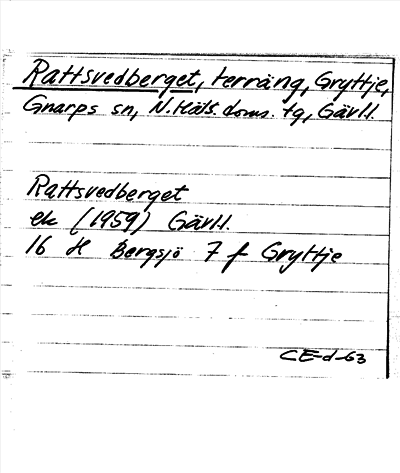 Rattsvedberget, terräng, Gryttje,
Gnarps sn, N.Häls. doms. tg, Gävl.l.
Rattsvedberget
ek (1959) Gävl.l.
16 H Bergsjö 7 f Gryttje
CE-d-63